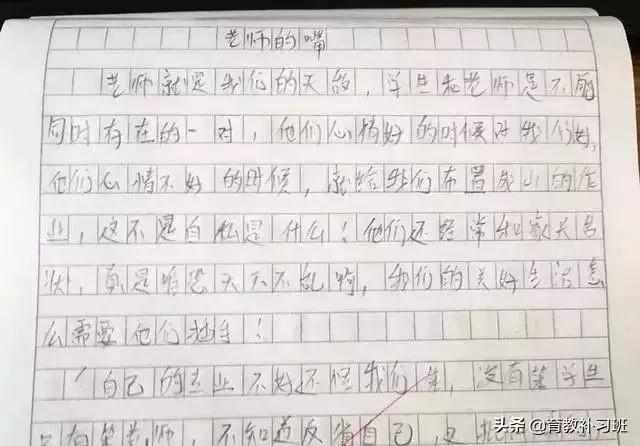 老师的嘴
老师就是我们的天敌，学生和老师是不能
同时存在的一对，他们心情好的时候对我们好，
他们心情不好的时候，就给我们布置成山的作
业，这不是自私是什么！他们还经常和家长告
状，真是唯恐天下不乱啊，我们的美好生活怎
么需要他们插手！
自己的 业不好不怪我们 ，没有笨学生
只有笨老师，不知道反省自己，这
头条 @育教补习班